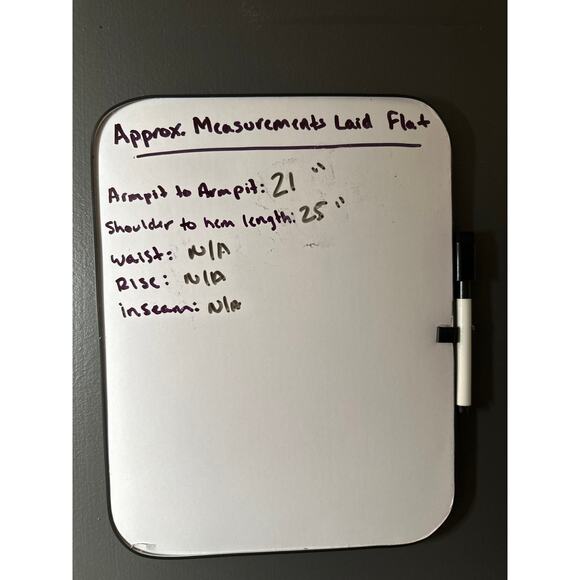 Approx. Measurements Laid Flat
Armpit to Armpit: 21 "
Shoulder to hem length: 25"
Waist: N/A
Rise: N/A
inseam: N/A